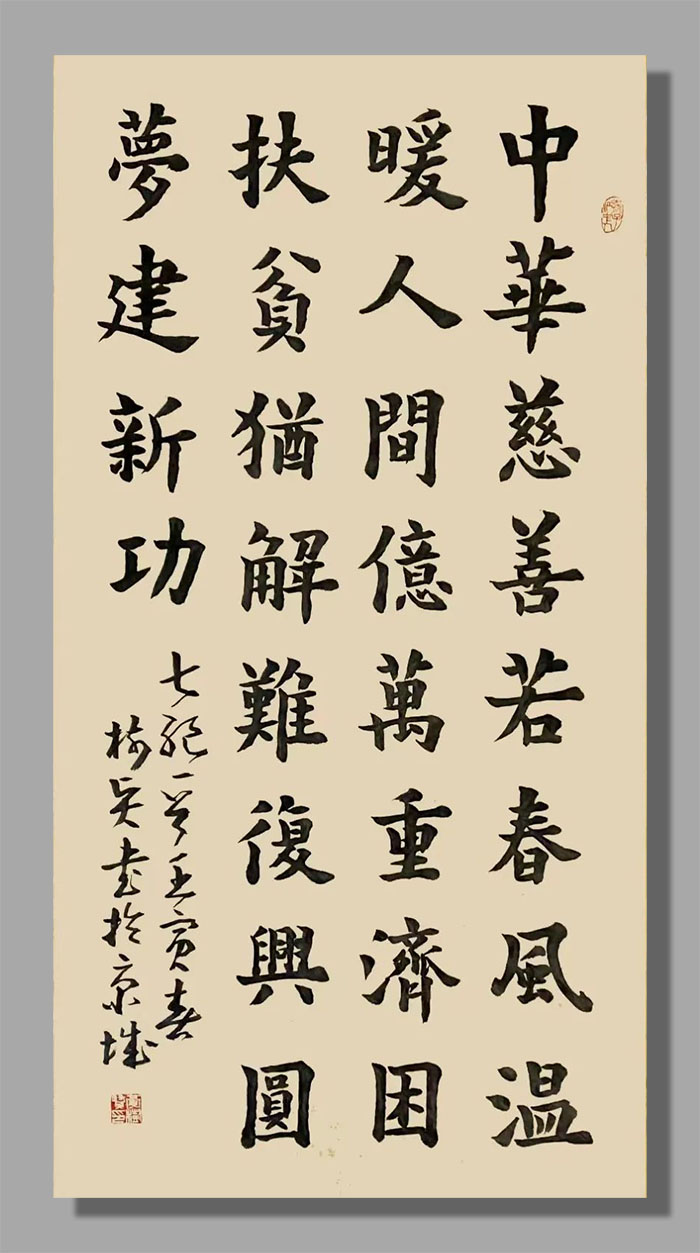 中華慈善若春風温
暖人間億萬重濟困
扶貧猶解難復興圓
夢建新功
七絕一首壬寅春
書於京城